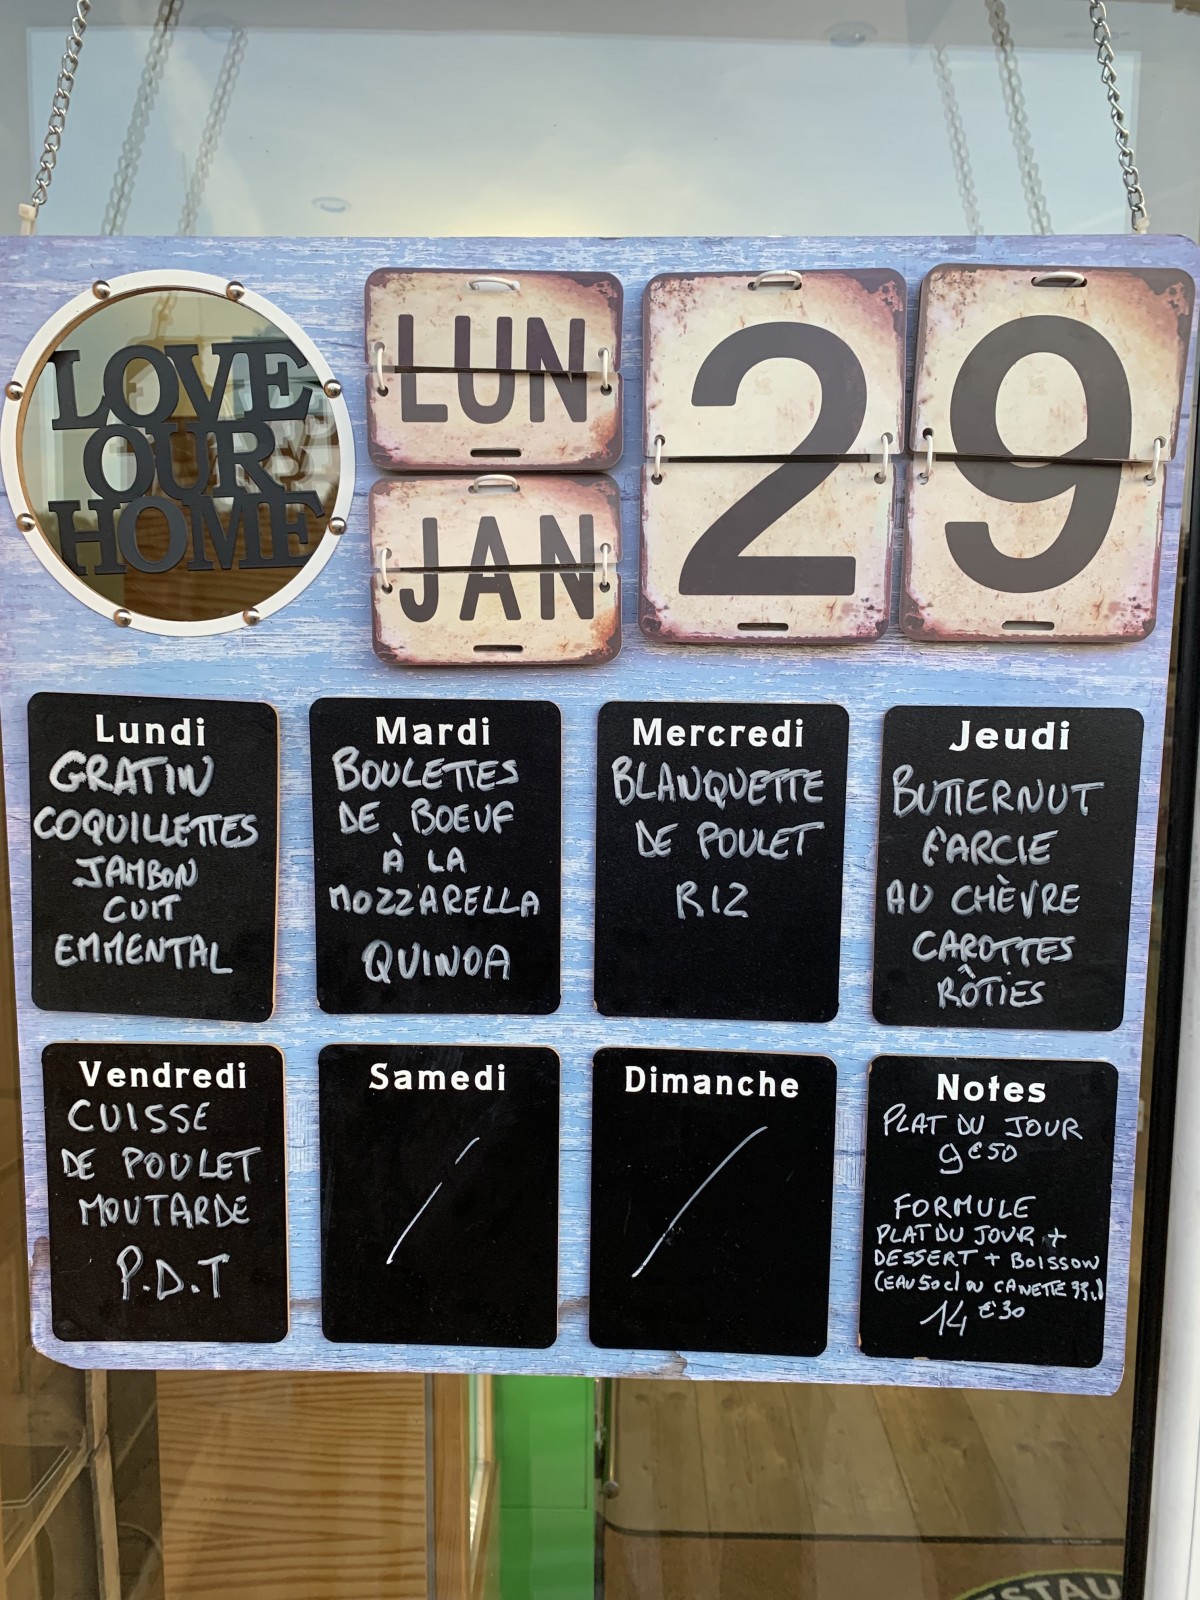 LOVE
OUR
HOME
LUN
JAN
29
Lundi
GRATIN
COQUILLETTES
JAMBON
CUIT
EMMENTAL
Mardi
BOULETTES
DE BOEUF
À LA
MOZZARELLA
QUINOA
Mercredi
BLANQUETTE
DE POULET
RIZ
Jeudi
BUTTERNUT
FARCIE
AU CHÈVRE
CAROTTES
RÔTIES
Vendredi
CUISSE
DE POULET
MOUTARDE
P.D.T
Samedi
Dimanche
Notes
PLAT DU JOUR
9€50
FORMULE
PLAT DU JOUR +
DESSERT + BOISSON
(EAU 50cl OU CANETTE 33cl)
14€30
ESTAU